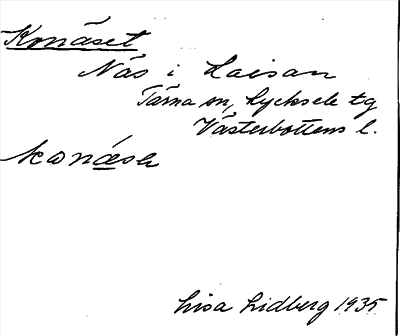 Konäset
Näs i Laisan
Tärna sn, Lycksele tg
Västerbottens l.
konäsе
Lisa Lidberg 1935